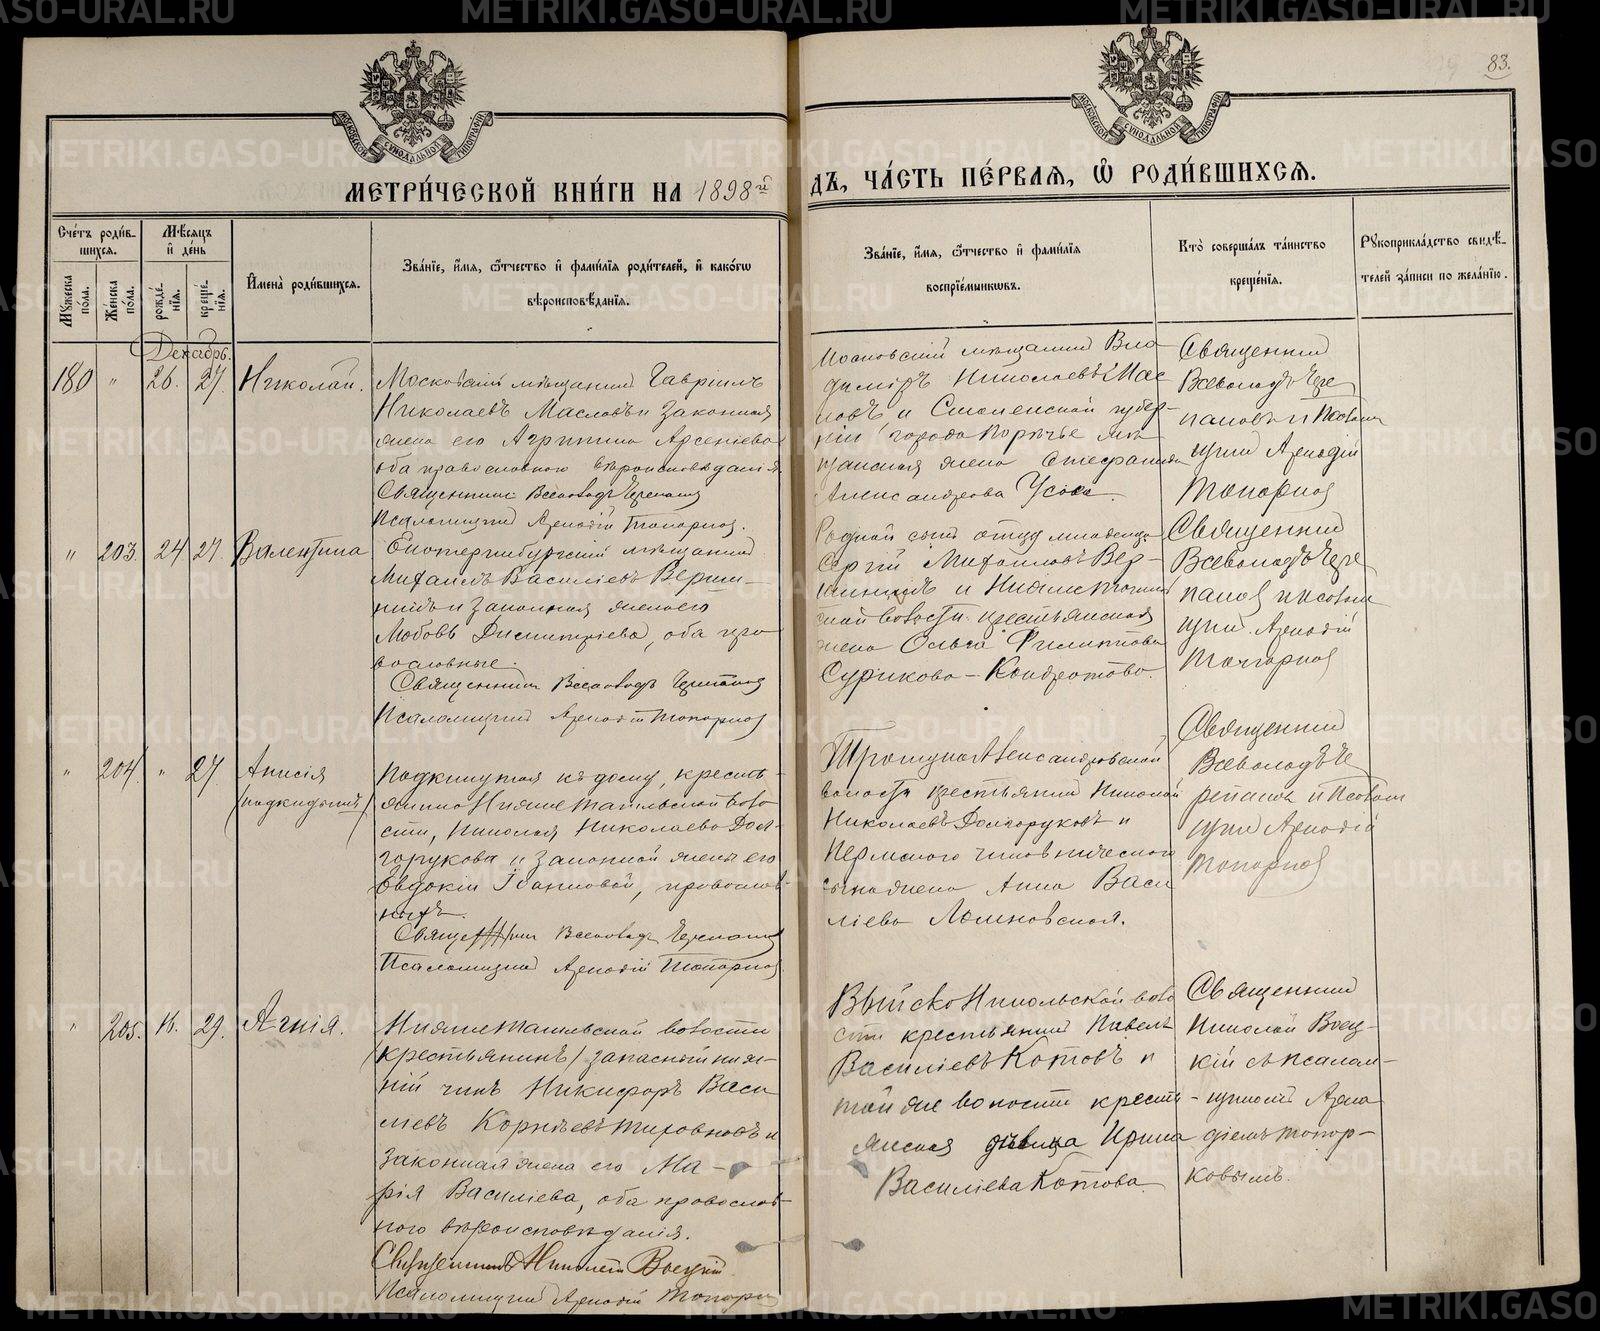 METRIKI.GASO-URAL.RU
83.
МЕТРИ́ЧЕСКОЙ КНИ́ГИ НА 1898й
ДЪ, ЧА́СТЬ ПЕ́РВАЯ, Ѽ РОДИ́ВШИХСЯ.
Сче́тъ роди́в-
шихся.
Му́жеска по́ла.
Же́нска по́ла.
Мѣ́сяцъ и҆ де́нь
рожде́нїя.
креще́нїя.
И҆мена̀ роди́вшихся.
Зва́нїе, и҆́мя, ѻ҆́тчество и҆ фами́лїя роди́телей, и҆ како́гѡ
вѣроисповѣ́данїя.
Зва́нїе, и҆́мя, ѻ҆́тчество и҆ фами́лїя
воспрїе́мникѡвъ.
Кто̀ соверша́лъ та́инство
креще́нїя.
Рꙋкоприкла́дство свидѣ́-
телей за́писи по жела́нїю.
Декабрь.
180 " 26. 27. Николай.
Московскій мѣщанинъ Гавріилъ
Николаевъ Масловъ и законная
жена его Агриппина Арсеніева
оба православнаго вѣроисповѣданія
Священникъ Всеволодъ Черепановъ
Псаломщикъ Аркадій Топорковъ.
Московскій мѣщанинъ Вла
димиръ Николаевъ Мас
ловъ и Смоленской губер-
ніи города Порѣчье мѣ
щанская жена Стефанида
Александрова Усова.
Священникъ
Всеволодъ Чере
пановъ и Псалом
щикъ Аркадій
Топорковъ
" 203. 24 27. Валентина
Екатеринбургскій мѣщанинъ
Михаилъ Василіевъ Верши-
нинъ и законная жена его
Любовь Димитріева, оба пра
вославные.
Священникъ Всеволодъ Черепановъ
Псаломщикъ Аркадій Топорковъ
Родной сынъ отца младенца
Сергій Михаиловъ Вер-
шининъ и Нижнетагиль
ской волости крестьянская
жена Ольга Филиппова
Сурикова-Кондратова.
Священникъ
Всеволодъ Чере
пановъ и Псалом
щикъ Аркадій
Топорковъ
" 204. " 27. Анисія
(подкидышъ)
Подкинутая къ дому, кресть-
янина Нижнетагильской воло
сти, Николая Николаева Дол-
горукова и законной жены его
Евдокіи Іоанновой, православ-
ныхъ.
Священникъ Всеволодъ Черепановъ
Псаломщикъ Аркадій Топорковъ.
Троицкоалександровской
волости крестьянинъ Николай
Николаевъ Долгоруковъ и
Пермскаго чиновническаго
сына жена Анна Васи
ліева
Священникъ
Всеволодъ Че
репановъ и Псалом
щикъ Аркадій
Топорковъ
" 205. 16. 29. Агнія.
Нижнетагильской волости
(крестьянинъ) запасный ниж-
ній чинъ Никифоръ Васи
ліевъ
законная жена его Ма-
рія Василіева, оба православ-
наго вѣроисповѣданія.
Священникъ Николай Воецкій
Псаломщикъ Аркадій Топорк
Выйско Никольской воло
сти крестьянинъ Павелъ
Василіевъ Котовъ и
той же волости кресть-
янская дѣвица Ирина
Василіева Котова
Священникъ
Николай Воец-
кій съ псалом-
щикомъ Арка
діемъ Топор-
ковымъ.